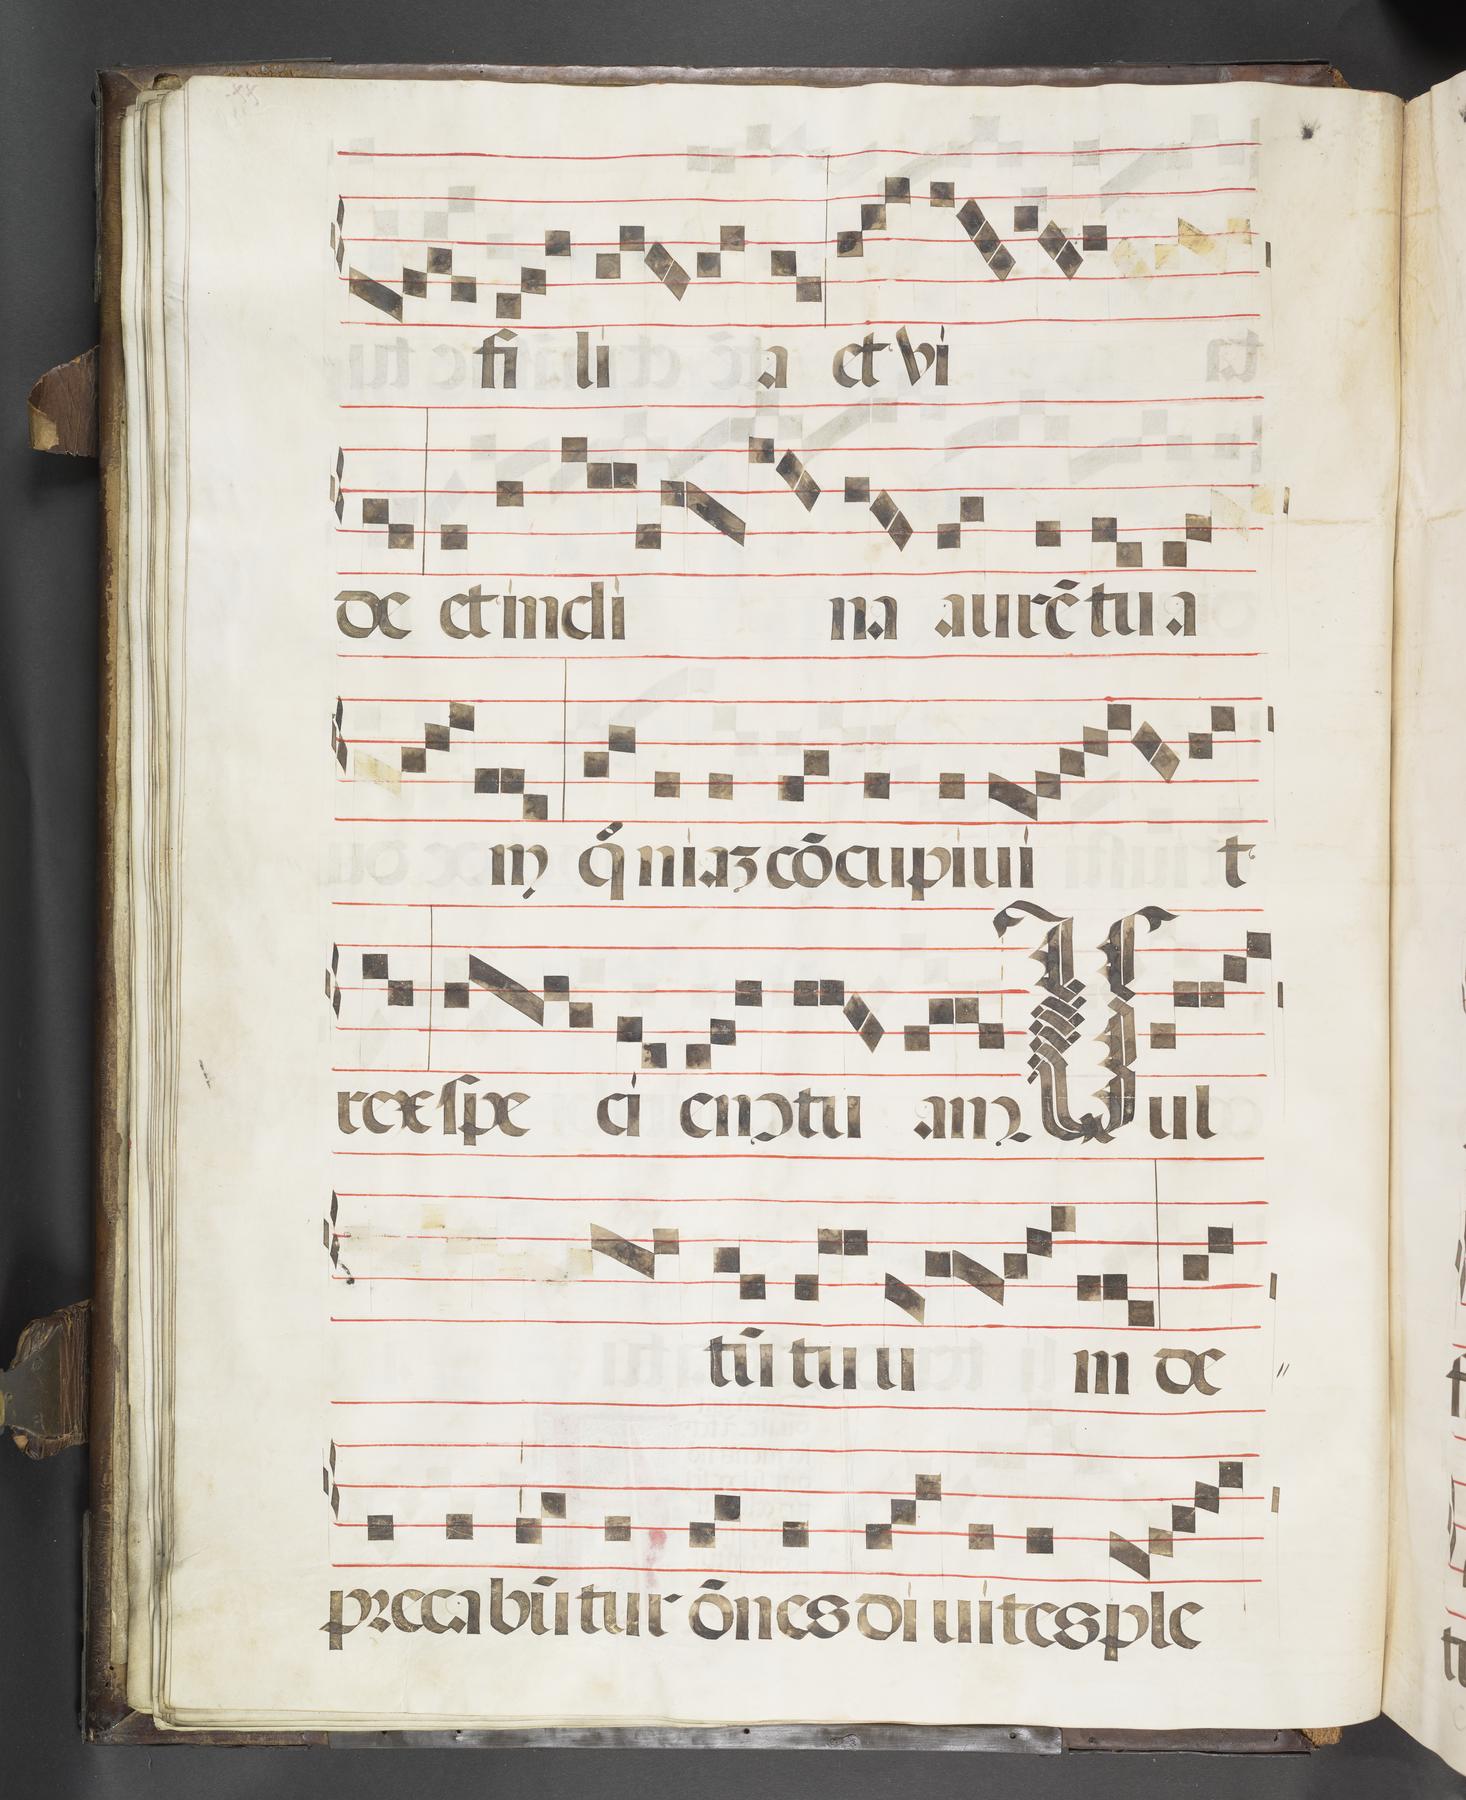 fi li a et vi
de et incli na aurẽ tu a
m q̃niaꝫ cõcupiui t
rex spe ci em tu am. Vul
tũ tu u m de
precabũtur õnes diuites ple